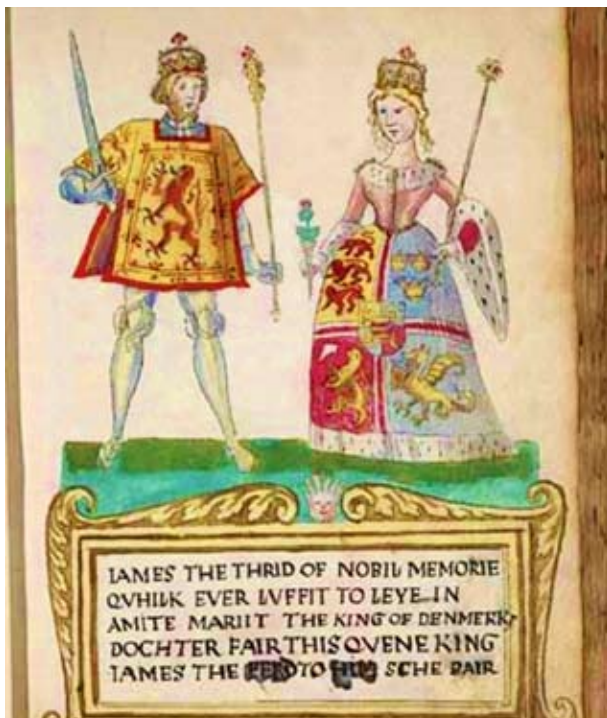 IAMES THE THRID OF NOBIL MEMORIE
QVHILK EVER LVFFIT TO LEVE IN
AMITE MARIIT THE KING OF DENMERKS
DOCHTER FAIR THIS QVENE KING
IAMES THE TO SCHE BAIR